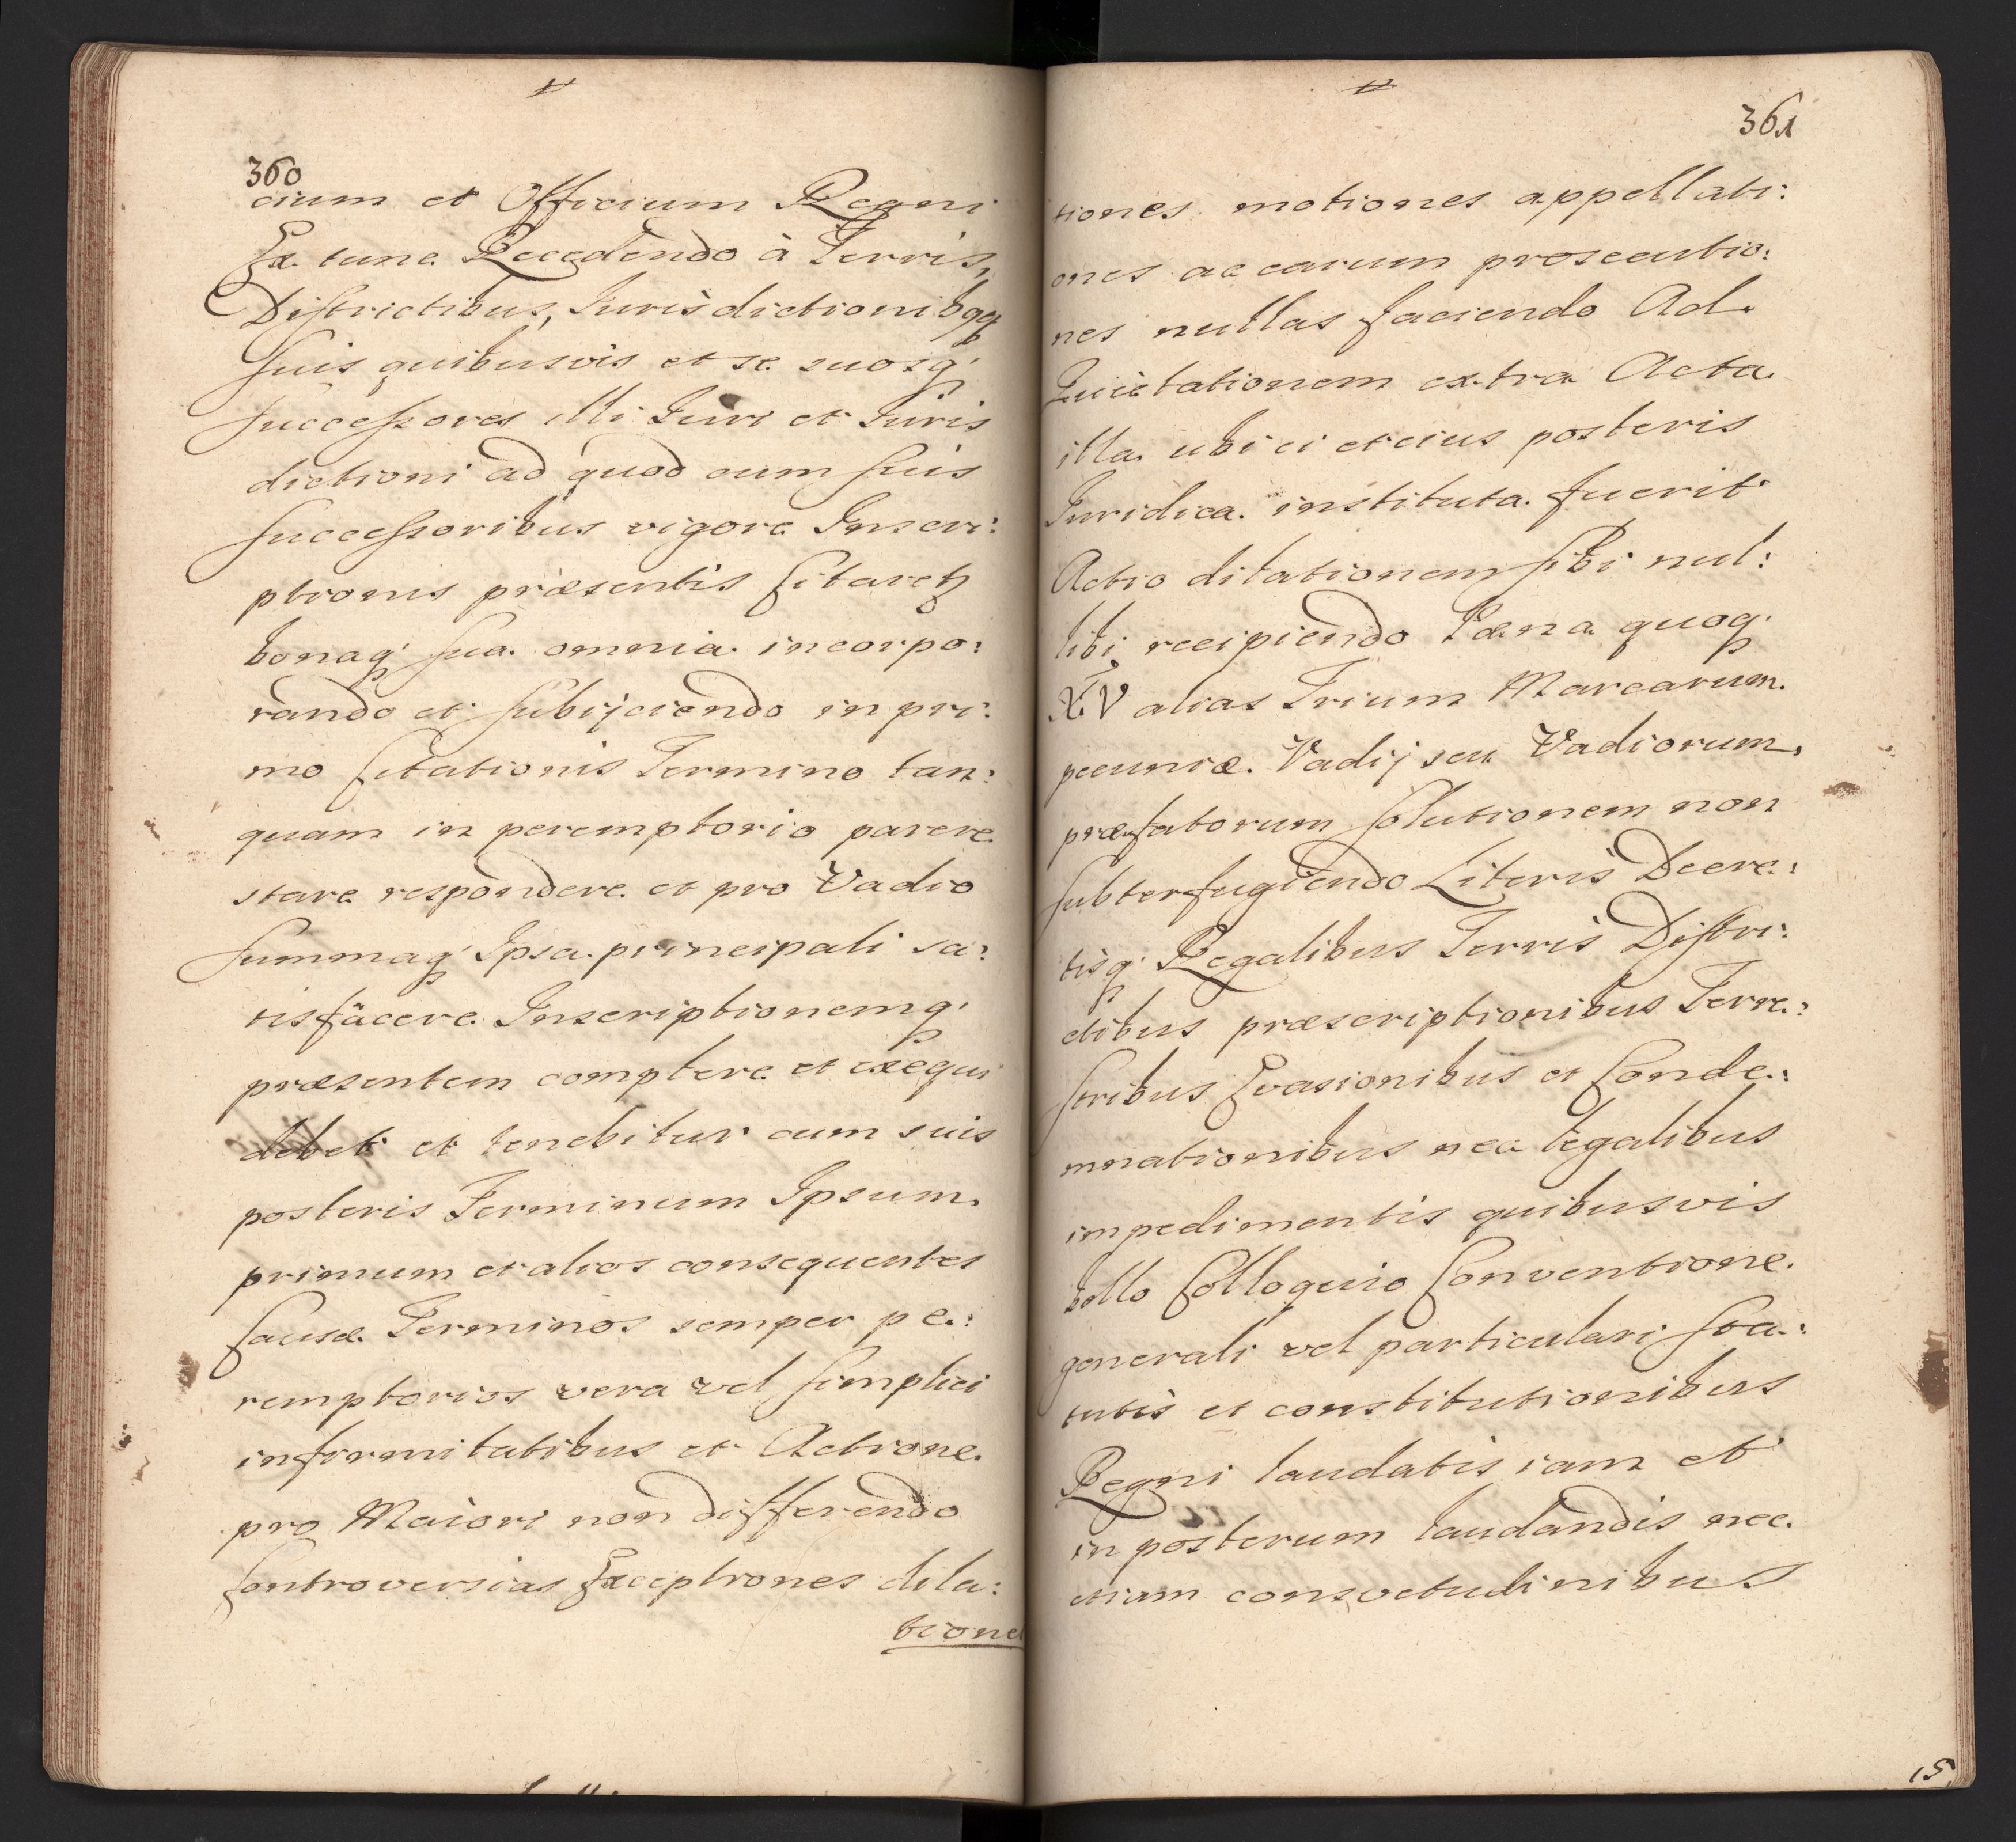 360
cium et Officium Regni
Ex tunc Recedendo à Terris,
Districtibus, Iurisdictionibqq
suis quibusvis et se suosq;
successores illi Iuri et Iuris
dictioni ad quod cum suis
successoribus vigore Inscri:
ptionis præsentis Citaretz
bonaq; sua omnia incorpo:
rando et subijciendo in pri:
mo Citationis Termino tan:
quam in peremptorio parere
stare respondere et pro Vadio
summaq; Ipsa principali sa:
tisfacere Inscriptionemq;
præsentem complere et exequi
debet et tenebitur cum suis
posteris Terminum Ipsum
primum et alios consequentes
Causæ Terminos semper pe:
remptorios vera vel simplici
infirmitatibus et Actione
pro Maiori non differendo
Controversias Exceptiones dila:
tiones
361
tiones motiones appellati:
ones ac earum prosecutio:
nes nullas faciendo Ad
Quietationem extra Acta
illa ubi ei et eius posteris
Iuridica instituta fuerit
Actio dilationem sibi nul:
libi recipiendo Pæna quoq;
XIV alias Trium Marcarum
pecuniæ Vadij seu Vadiorum
præfatorum solutionem non
subterfugiendo Literis Decre:
tisq; Regalibus Terris Distri:
ctibus præscriptionibus Terre:
stribus Evasionibus et Conde:
mnationibus nec legalibus
impedimentis quibusvis
bello Colloquio Conventione
generali vel particulari sta:
tutis et constitutionibus
Regni laudatis iam et
in posterum laudandis nec
etiam consvetudinibus
15